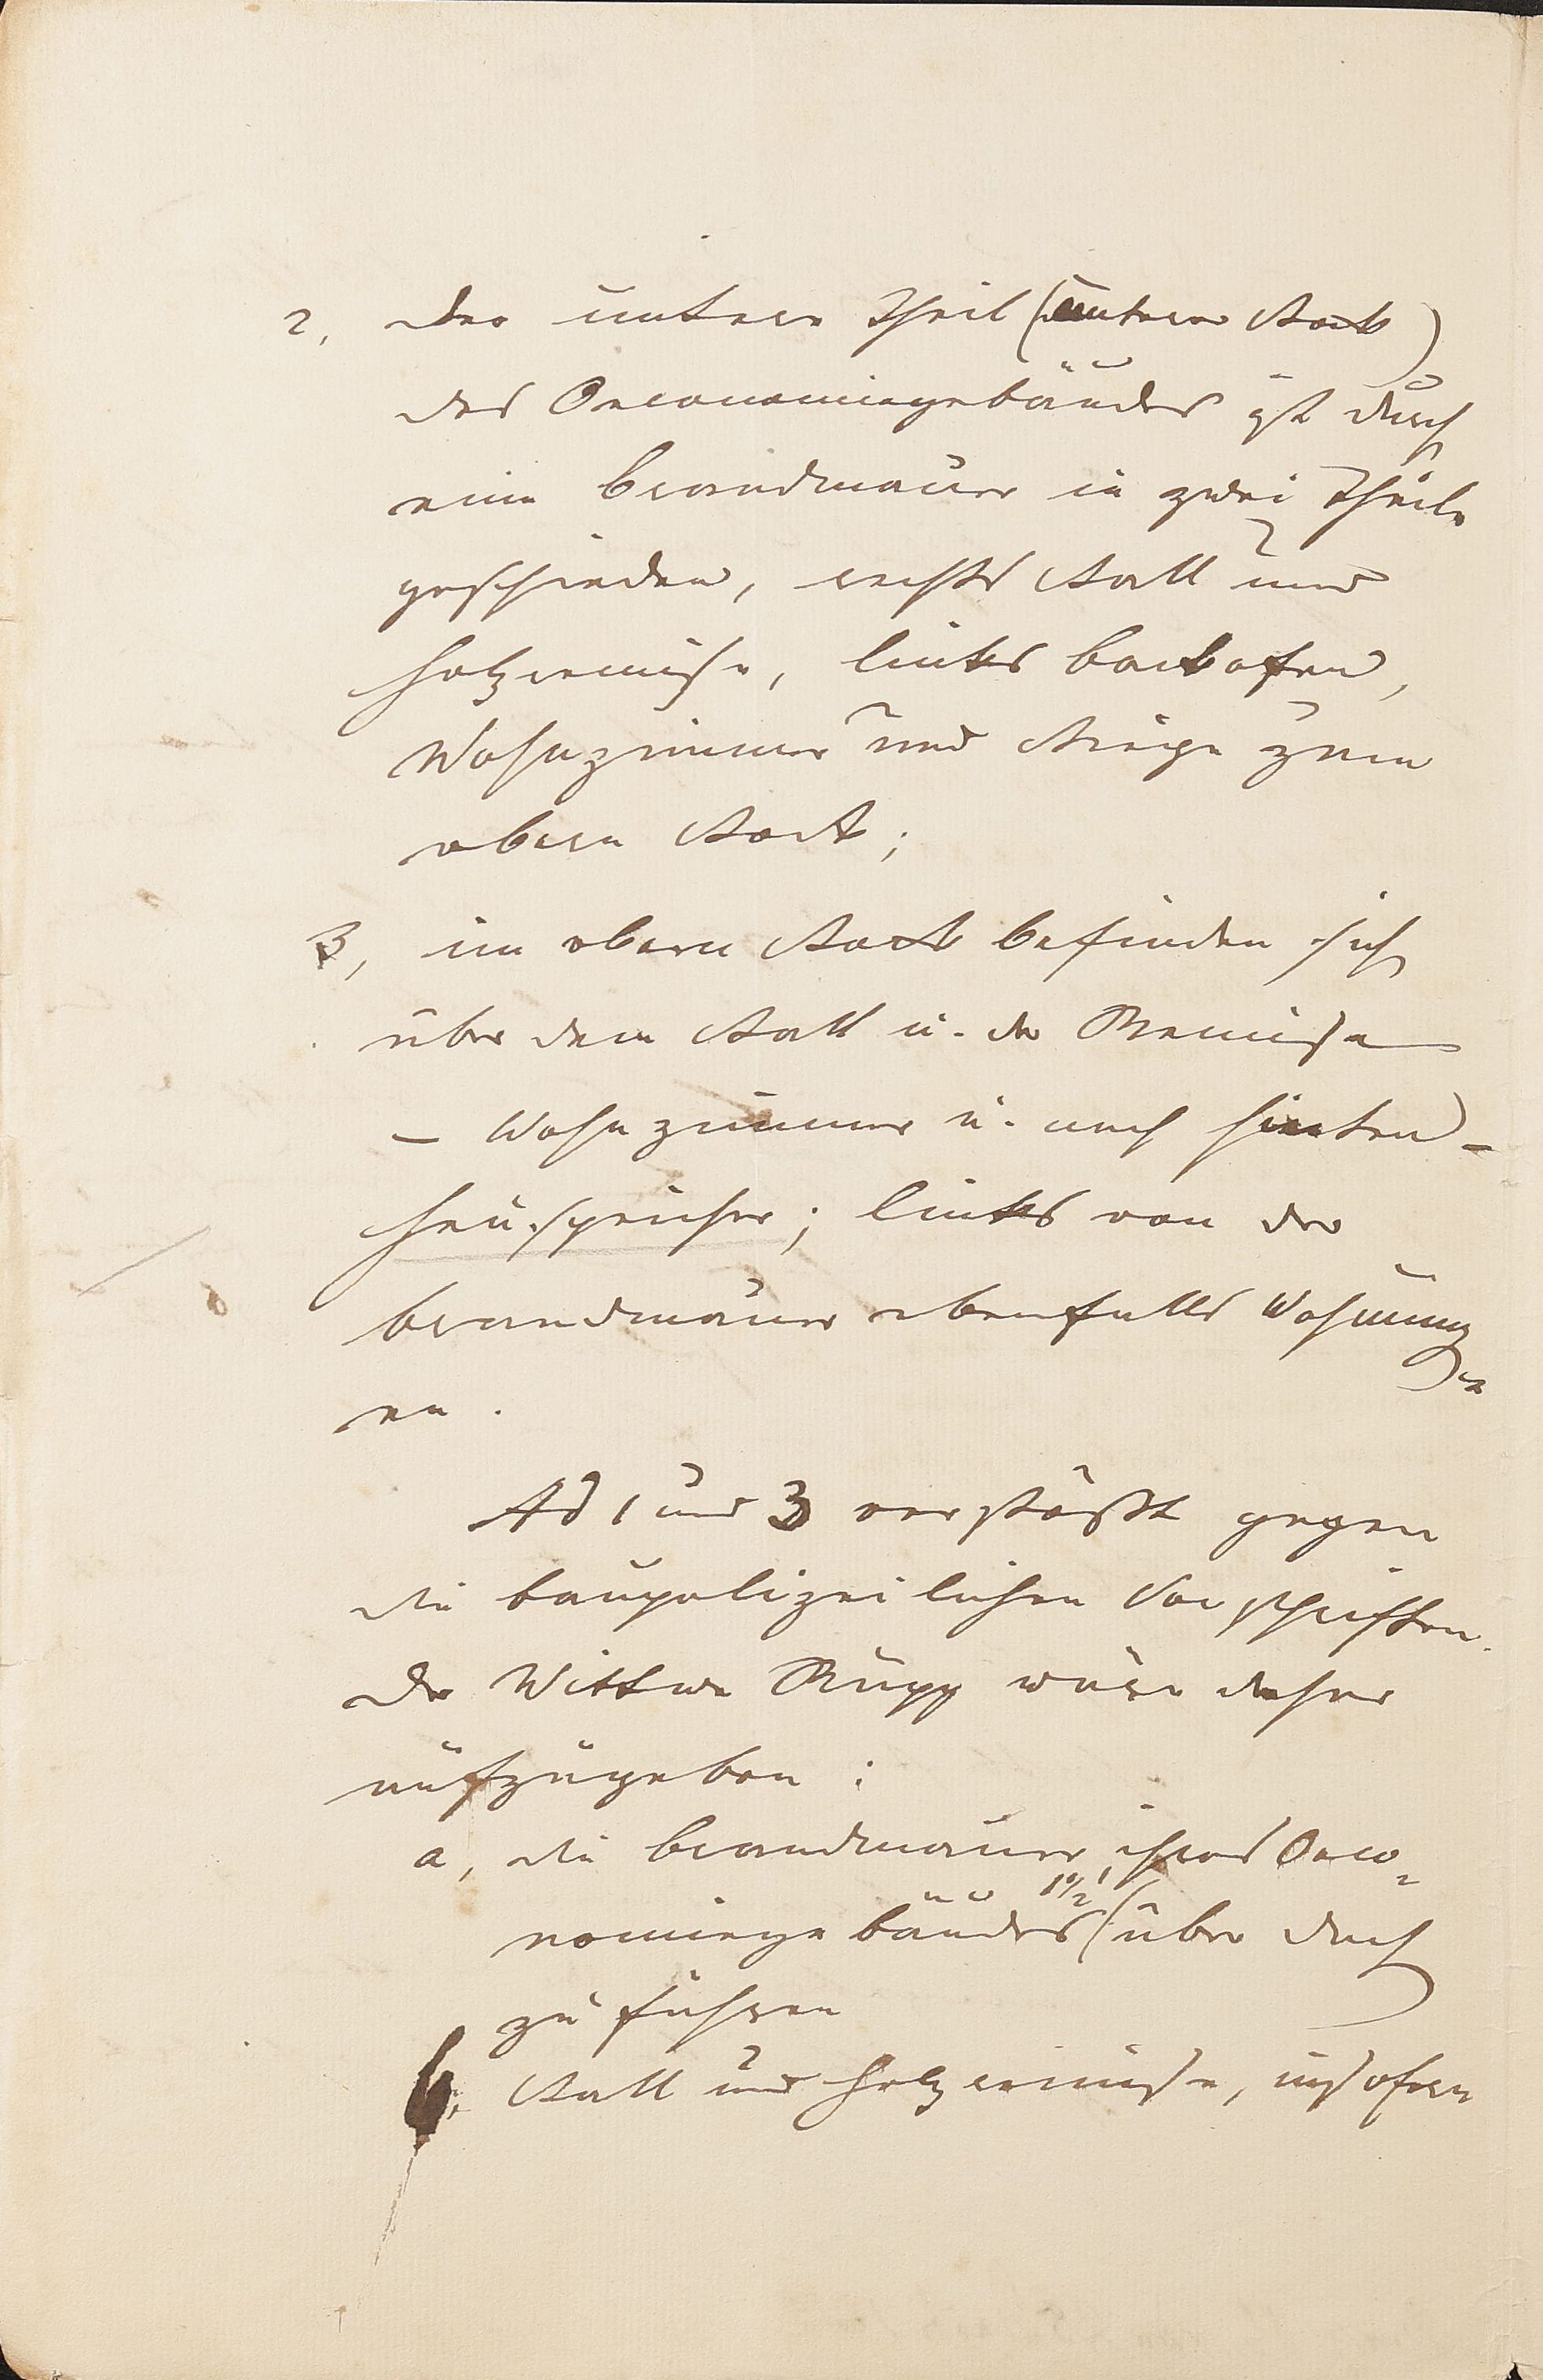 2, der untere Theil (untere Stock)
des Oeconomiegebäudes ist durch
eine Brandmauer in zwei Theile
geschieden, rechts Stall und
Holzremise, links Backofen,
Wohnzimmer und Stiege zum
obern Stock;
3, im obern Stock befinden sich
über dem Stall u. der Remise
– Wohnzimmer u. nach hinten –
Heuspeicher; links von der
Brandmauer ebenfalls Wohnung-
en.
Ad 1 und 3 verstößt gegen
die baupolizeilichen Vorschriften.
Der Wittwe Rupp wäre daher
aufzugeben:
a, die Brandmauer ihres Oeco-
nomiegebäudes 1½' über Dach
zu führen
b, Stall und Holzremise, insofern